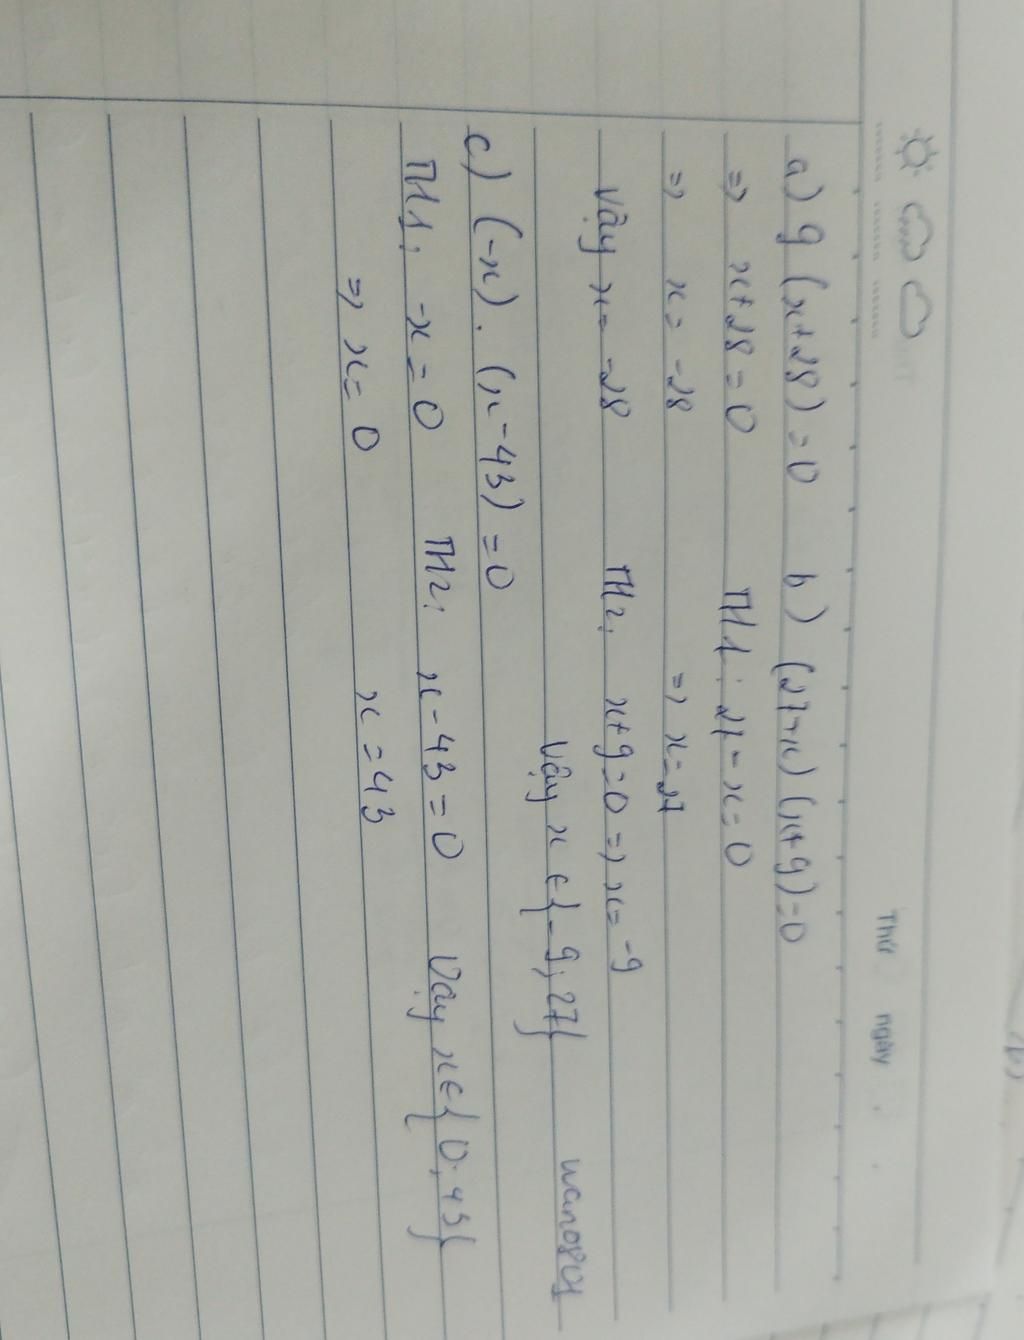 Thứ ngày
a) 9 (x+28) = 0 b) (27-x) (x+9)=0
=> x+28 = 0 TH1: 27 - x = 0
=> x = -28 => x = 27
Vậy x = -28 TH2: x+9=0 => x = -9
Vậy x ∈ {-9; 27}
wano801
c) (-x). (x-43) = 0
TH1: -x = 0 TH2: x-43 = 0 Vậy x ∈ {0; 43}
=> x = 0 x = 43